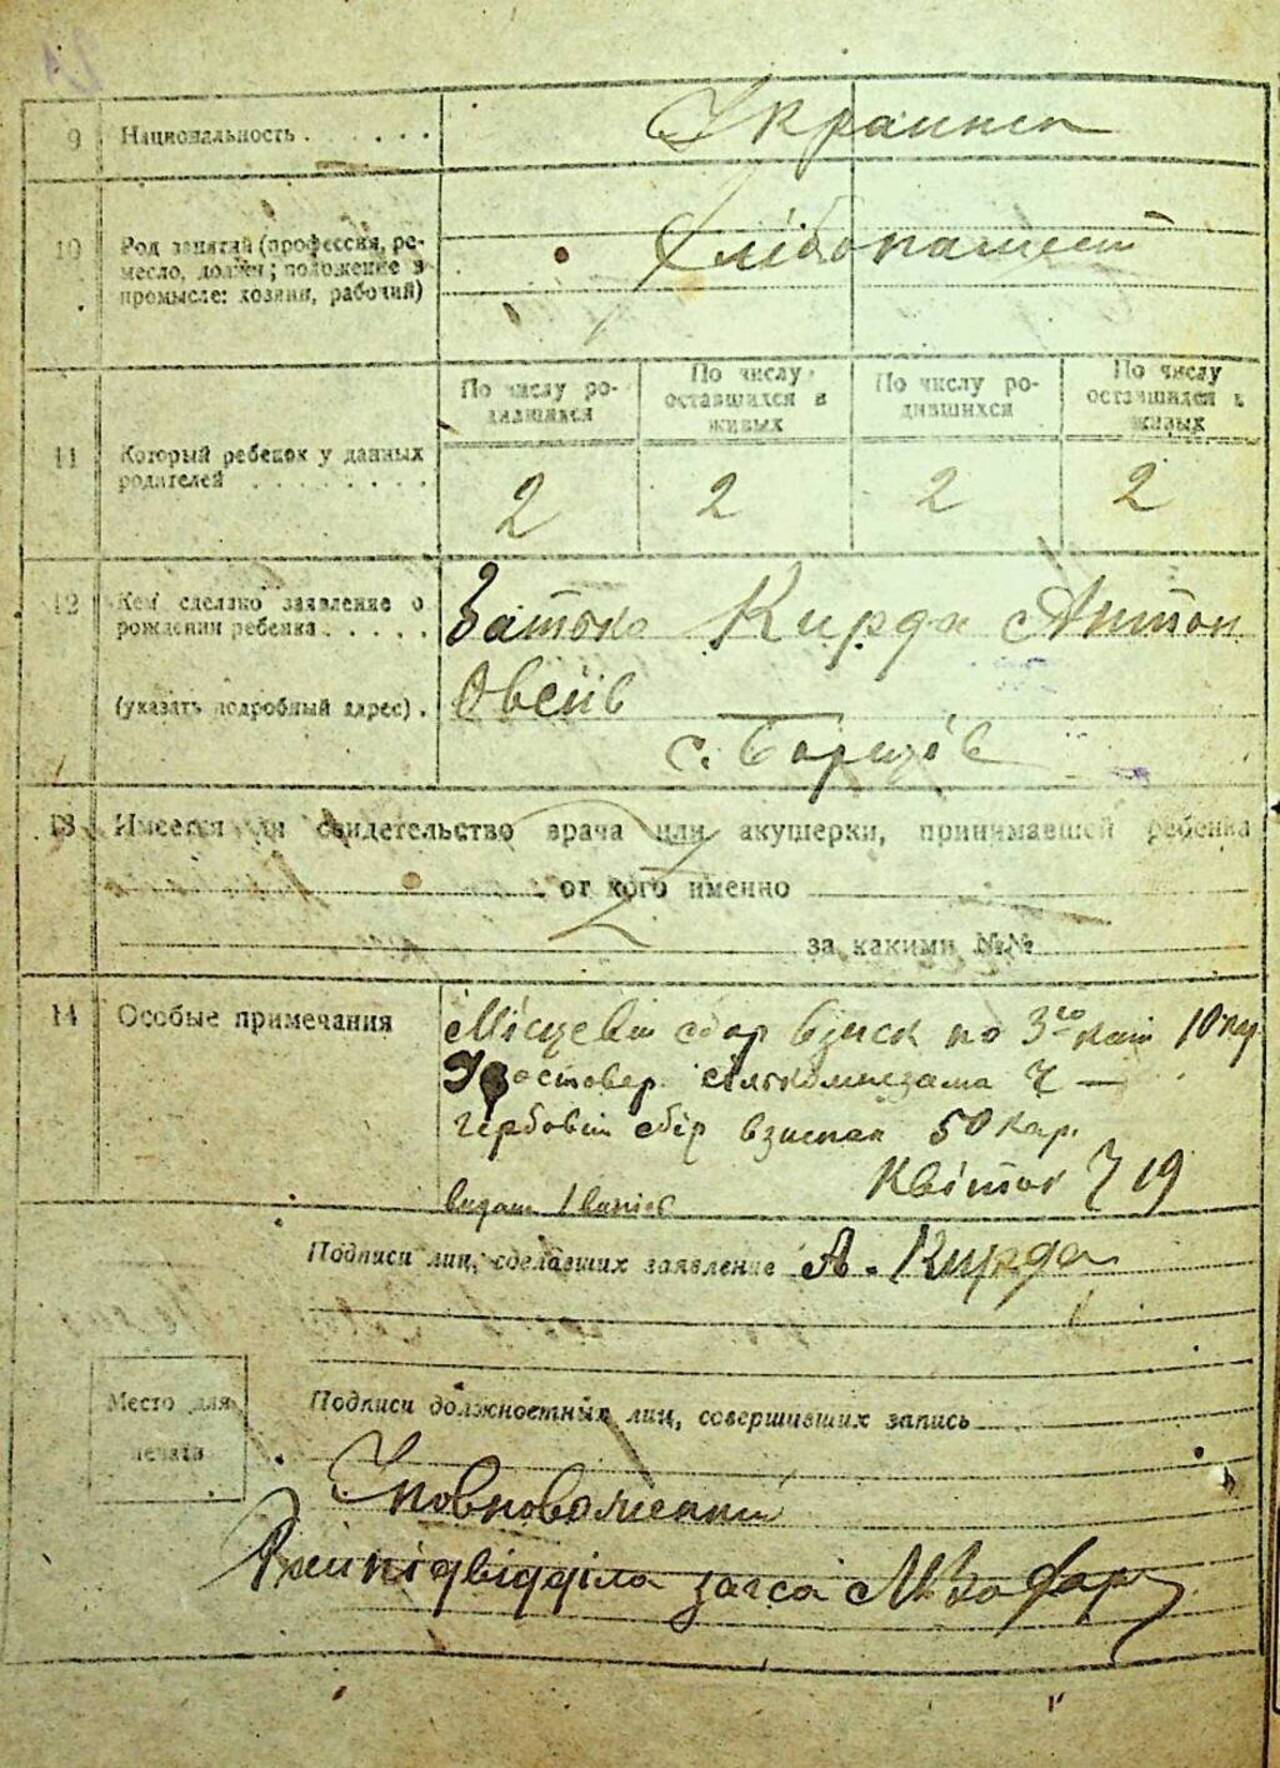 9 Национальность . . . . . . Украинск
10 Род занятий (профессия, ре-
месло, должн; положение в
промысле: хозяин, рабочий)
Хлібопашест
По числу ро-
дившихся
По числу
оставшихся в
живых
По числу ро-
дившихся
По числу
оставшихся в
живых
11 Который ребенок у данных
родителей . . . . . . . .
2 2 2 2
12 Кем сделано заявление о
рождении ребенка . . . . .
(указать подробный адрес) .
Батько Кирда Антон
Овсіїв
с. Борщів
13 Имеется ли свидетельство врача или акушерки, принимавшей ребенка
от кого именно
за какими №№
14 Особые примечания
Місцевій сбор взиск по 3го кат 10 кар
7 —
гербовій сбір взискан 50 кар.
Квіток 719
Подписи лиц, сделавших заявление А. Кирда
Место для
печати
Подписи должностных лиц, совершивших запись
Уповноважений
Райпідвідділа загса